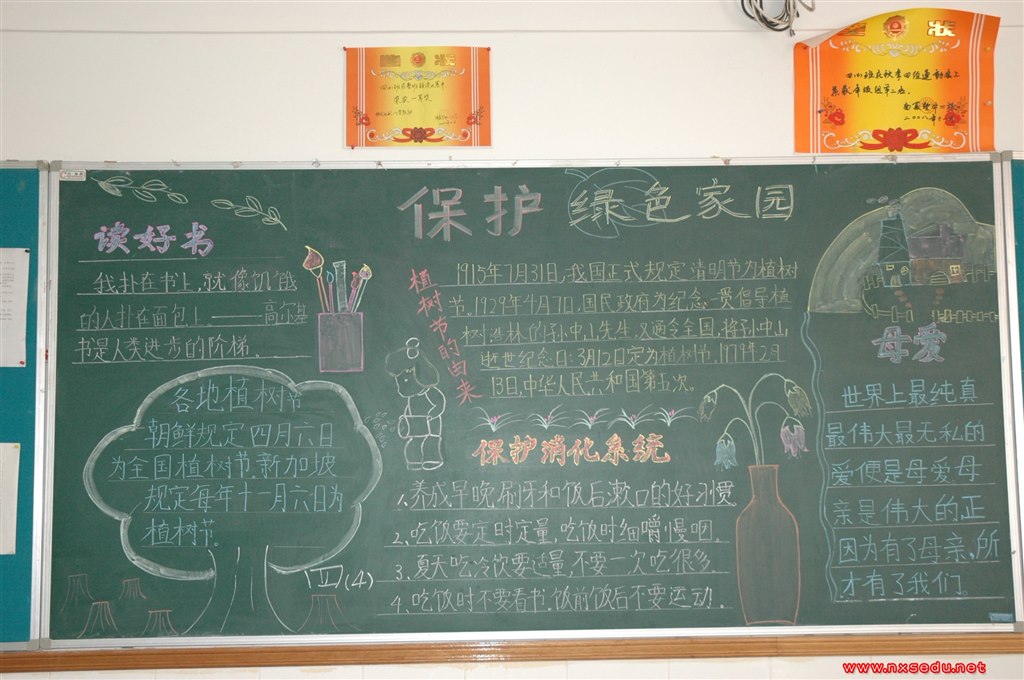 奖状
四(4)班在秋季田径运动会上
荣获年级组第二名。
保护 绿色家园
读好书
我扑在书上,就像饥饿
的人扑在面包上。——高尔基
书是人类进步的阶梯。
植树节的由来
1915年7月31日,我国正式规定清明节为植树
节。1929年4月7日,国民政府为纪念一贯倡导植
树造林的孙中山先生,又通令全国,将孙中山
逝世纪念日:3月12日定为植树节。1979年2月
13日,中华人民共和国第五次。
各地植树节
朝鲜规定四月六日
为全国植树节。新加坡
规定每年十一月六日为
植树节。
四(4)
保护消化系统
1、养成早晚刷牙和饭后漱口的好习惯
2、吃饭要定时定量,吃饭时细嚼慢咽。
3、夏天吃冷饮要适量,不要一次吃很多。
4、吃饭时不要看书,饭前饭后不要运动。
母爱
世界上最纯真
最伟大最无私的
爱便是母爱母
亲是伟大的正
因为有了母亲,所
才有了我们。
www.nxsedu.net